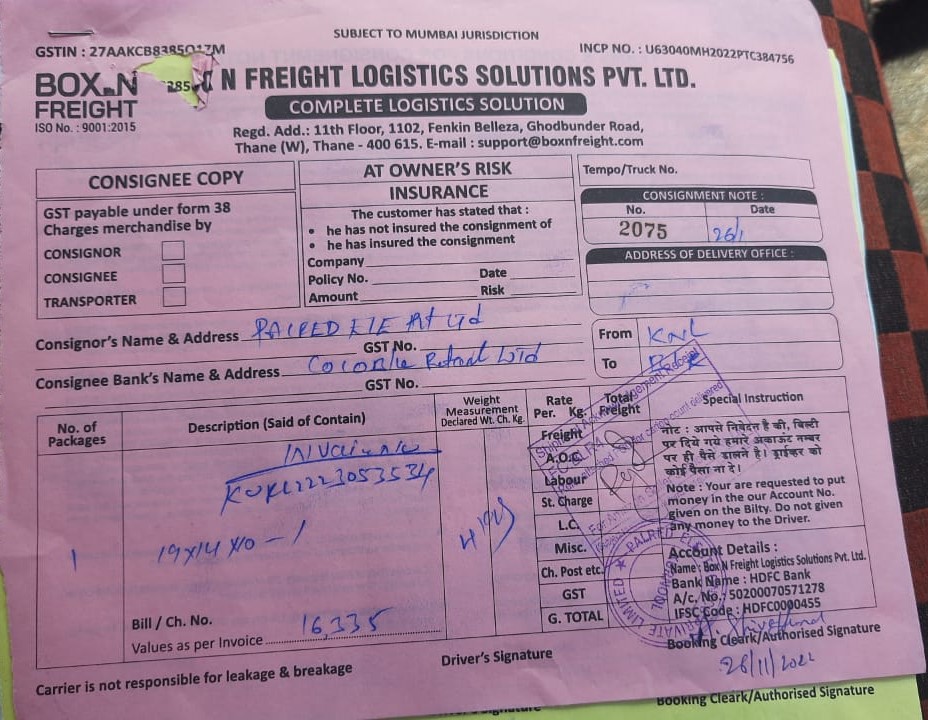 SUBJECT TO MUMBAI JURISDICTION
GSTIN : 27AAKCB8385Q1ZM
INCP NO. : U63040MH2022PTC384756
BOX N FREIGHT
ISO No. : 9001:2015
N FREIGHT LOGISTICS SOLUTIONS PVT. LTD.
COMPLETE LOGISTICS SOLUTION
Regd. Add.: 11th Floor, 1102, Fenkin Belleza, Ghodbunder Road,
Thane (W), Thane - 400 615. E-mail : support@boxnfreight.com
CONSIGNEE COPY
GST payable under form 38
Charges merchandise by
CONSIGNOR
CONSIGNEE
TRANSPORTER
AT OWNER'S RISK
INSURANCE
The customer has stated that :
• he has not insured the consignment of
• he has insured the consignment
Company
Policy No. Date
Amount Risk
Tempo/Truck No.
CONSIGNMENT NOTE :
No. Date
2075 26/1
ADDRESS OF DELIVERY OFFICE :
Consignor's Name & Address PALRED ELE Pvt Ltd
GST No.
Consignee Bank's Name & Address Retail Ltd
GST No.
From
To
No. of Packages
Description (Said of Contain)
Weight Measurement Declared Wt. Ch. Kg.
Rate Per. Kg.
Total Freight
Special Instruction
1
19x14x10-1
Bill / Ch. No.
Values as per Invoice 16,335
Freight
A.O.C.
Labour
St. Charge
L.C.
Misc.
Ch. Post etc.
GST
G. TOTAL
नोट : आपसे निवेदन है की, बिल्टी
पर दिये गये हमारे अकाऊंट नम्बर
पर ही पैसे डालने है। ड्राईव्हर को
कोई पैसा ना दे।
Note : Your are requested to put
money in the our Account No.
given on the Bilty. Do not given
any money to the Driver.
Account Details :
Name : Box N Freight Logistics Solutions Pvt. Ltd.
Bank Name : HDFC Bank
A/c. No. 50200070571278
IFSC Code : HDFC0000455
Booking Cleark/Authorised Signature
26/11/2022
Driver's Signature
Carrier is not responsible for leakage & breakage
Booking Cleark/Authorised Signature